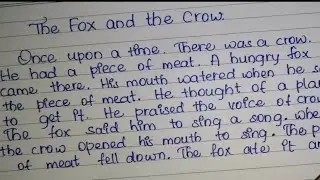 The Fox and the Crow.
Once upon a time. There was a crow.
He had a piece of meat. A hungry fox
came there. His mouth watered when he
the piece of meat. He thought of a plan
to get it. He praised the voice of crow
The fox said him to sing a song. whe
the crow opened his mouth to sing. The
of meat fell down. The fox ate it